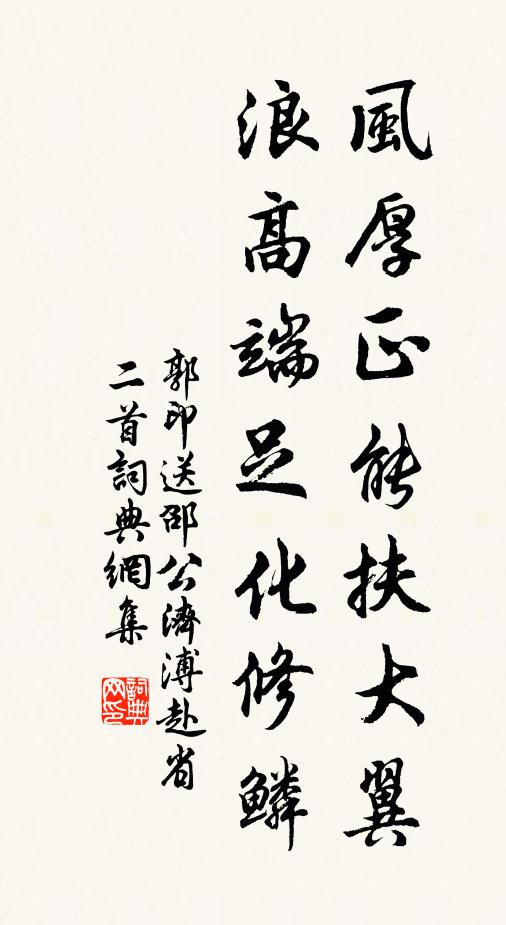 風厚正能扶大翼
浪高端足化修鱗
郭印送邵公濟溥赴省
二首詞典網集
詞典网印